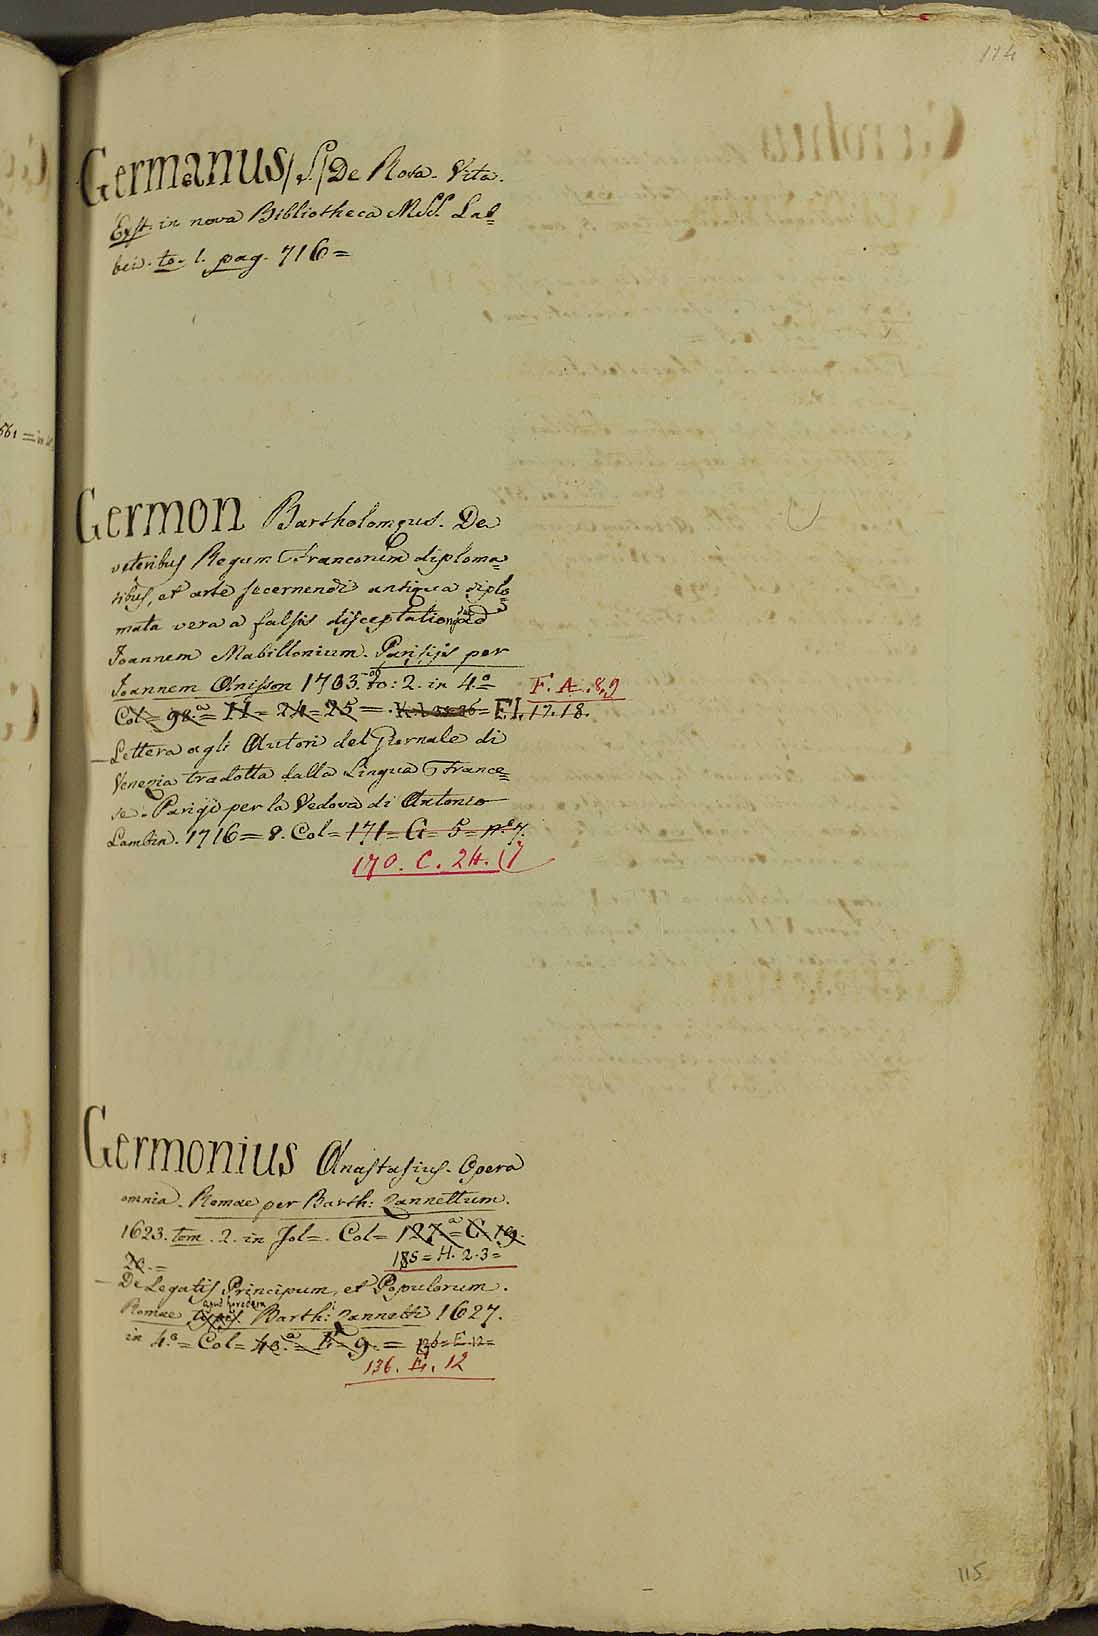 114
Germanus /S./ De Rosa. Vita.
Exst. in nova Bibliotheca MSS. Lab=
bei. to. 1. pag. 716=
561 = in
Germon Bartholomęus. De
veteribus Regum Francorum diploma=
tibus, et arte secernendi antiqua diplo
mata vera a falsis disceptationes ad
Joannem Mabillonium. Parisijs per
Joannem Anisson 1703. to: 2. in 4.º=
F. A. 8,9
Col= 98.ª= H= 24= 25= = F.I. 17. 18.
— Lettera agli Autori del Giornale di
Venezia tradotta dalla Lingua France=
se. Parigi per la Vedova di Antonio
Lambin. 1716= 8. Col= 171= G= 5= nº 7.
170. C. 24. (7
Germonius Anastasius. Opera
omnia. Romae per Barth: Zannettum.
1623. tom. 2. in fol=. Col= 127.ª= C. 19.
20.= 185= H. 2.3=
— De Legatis Principum, et Populorum.
apud haredem
Romae typis Barth: Zannetti 1627.
in 4.º= Col= 40.ª= F= 9.= 136= E. 12=
136. E. 12
115